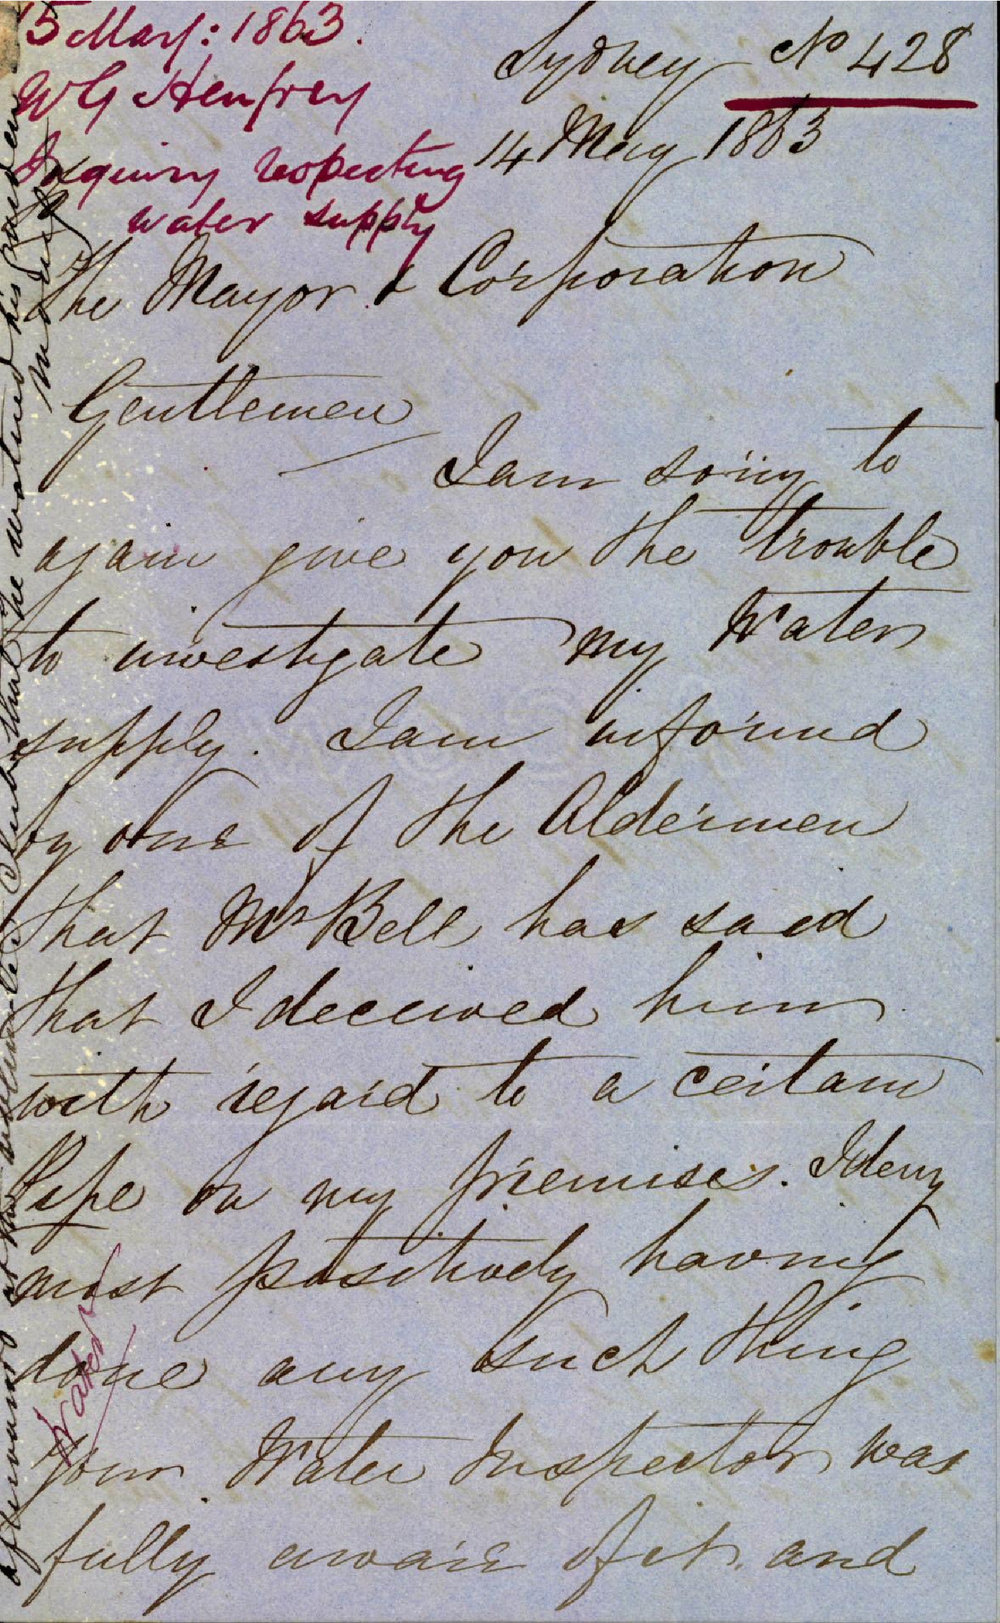 15 May: 1863.
W G Henfrey
Inquiry respecting
water supply
Sydney No 428
14 May 1863
The Mayor & Corporation
Gentlemen
I am sorry to
again give you the trouble
to investigate my Water
supply. I am informed
by one of the Aldermen
that Mr Bell has said
that I deceived him
with regard to a certain
Pipe on my premises. I deny
most positively having
done any such thing
your Water Inspector was
fully aware of it and
Water
afterwards at the Club that he watered his